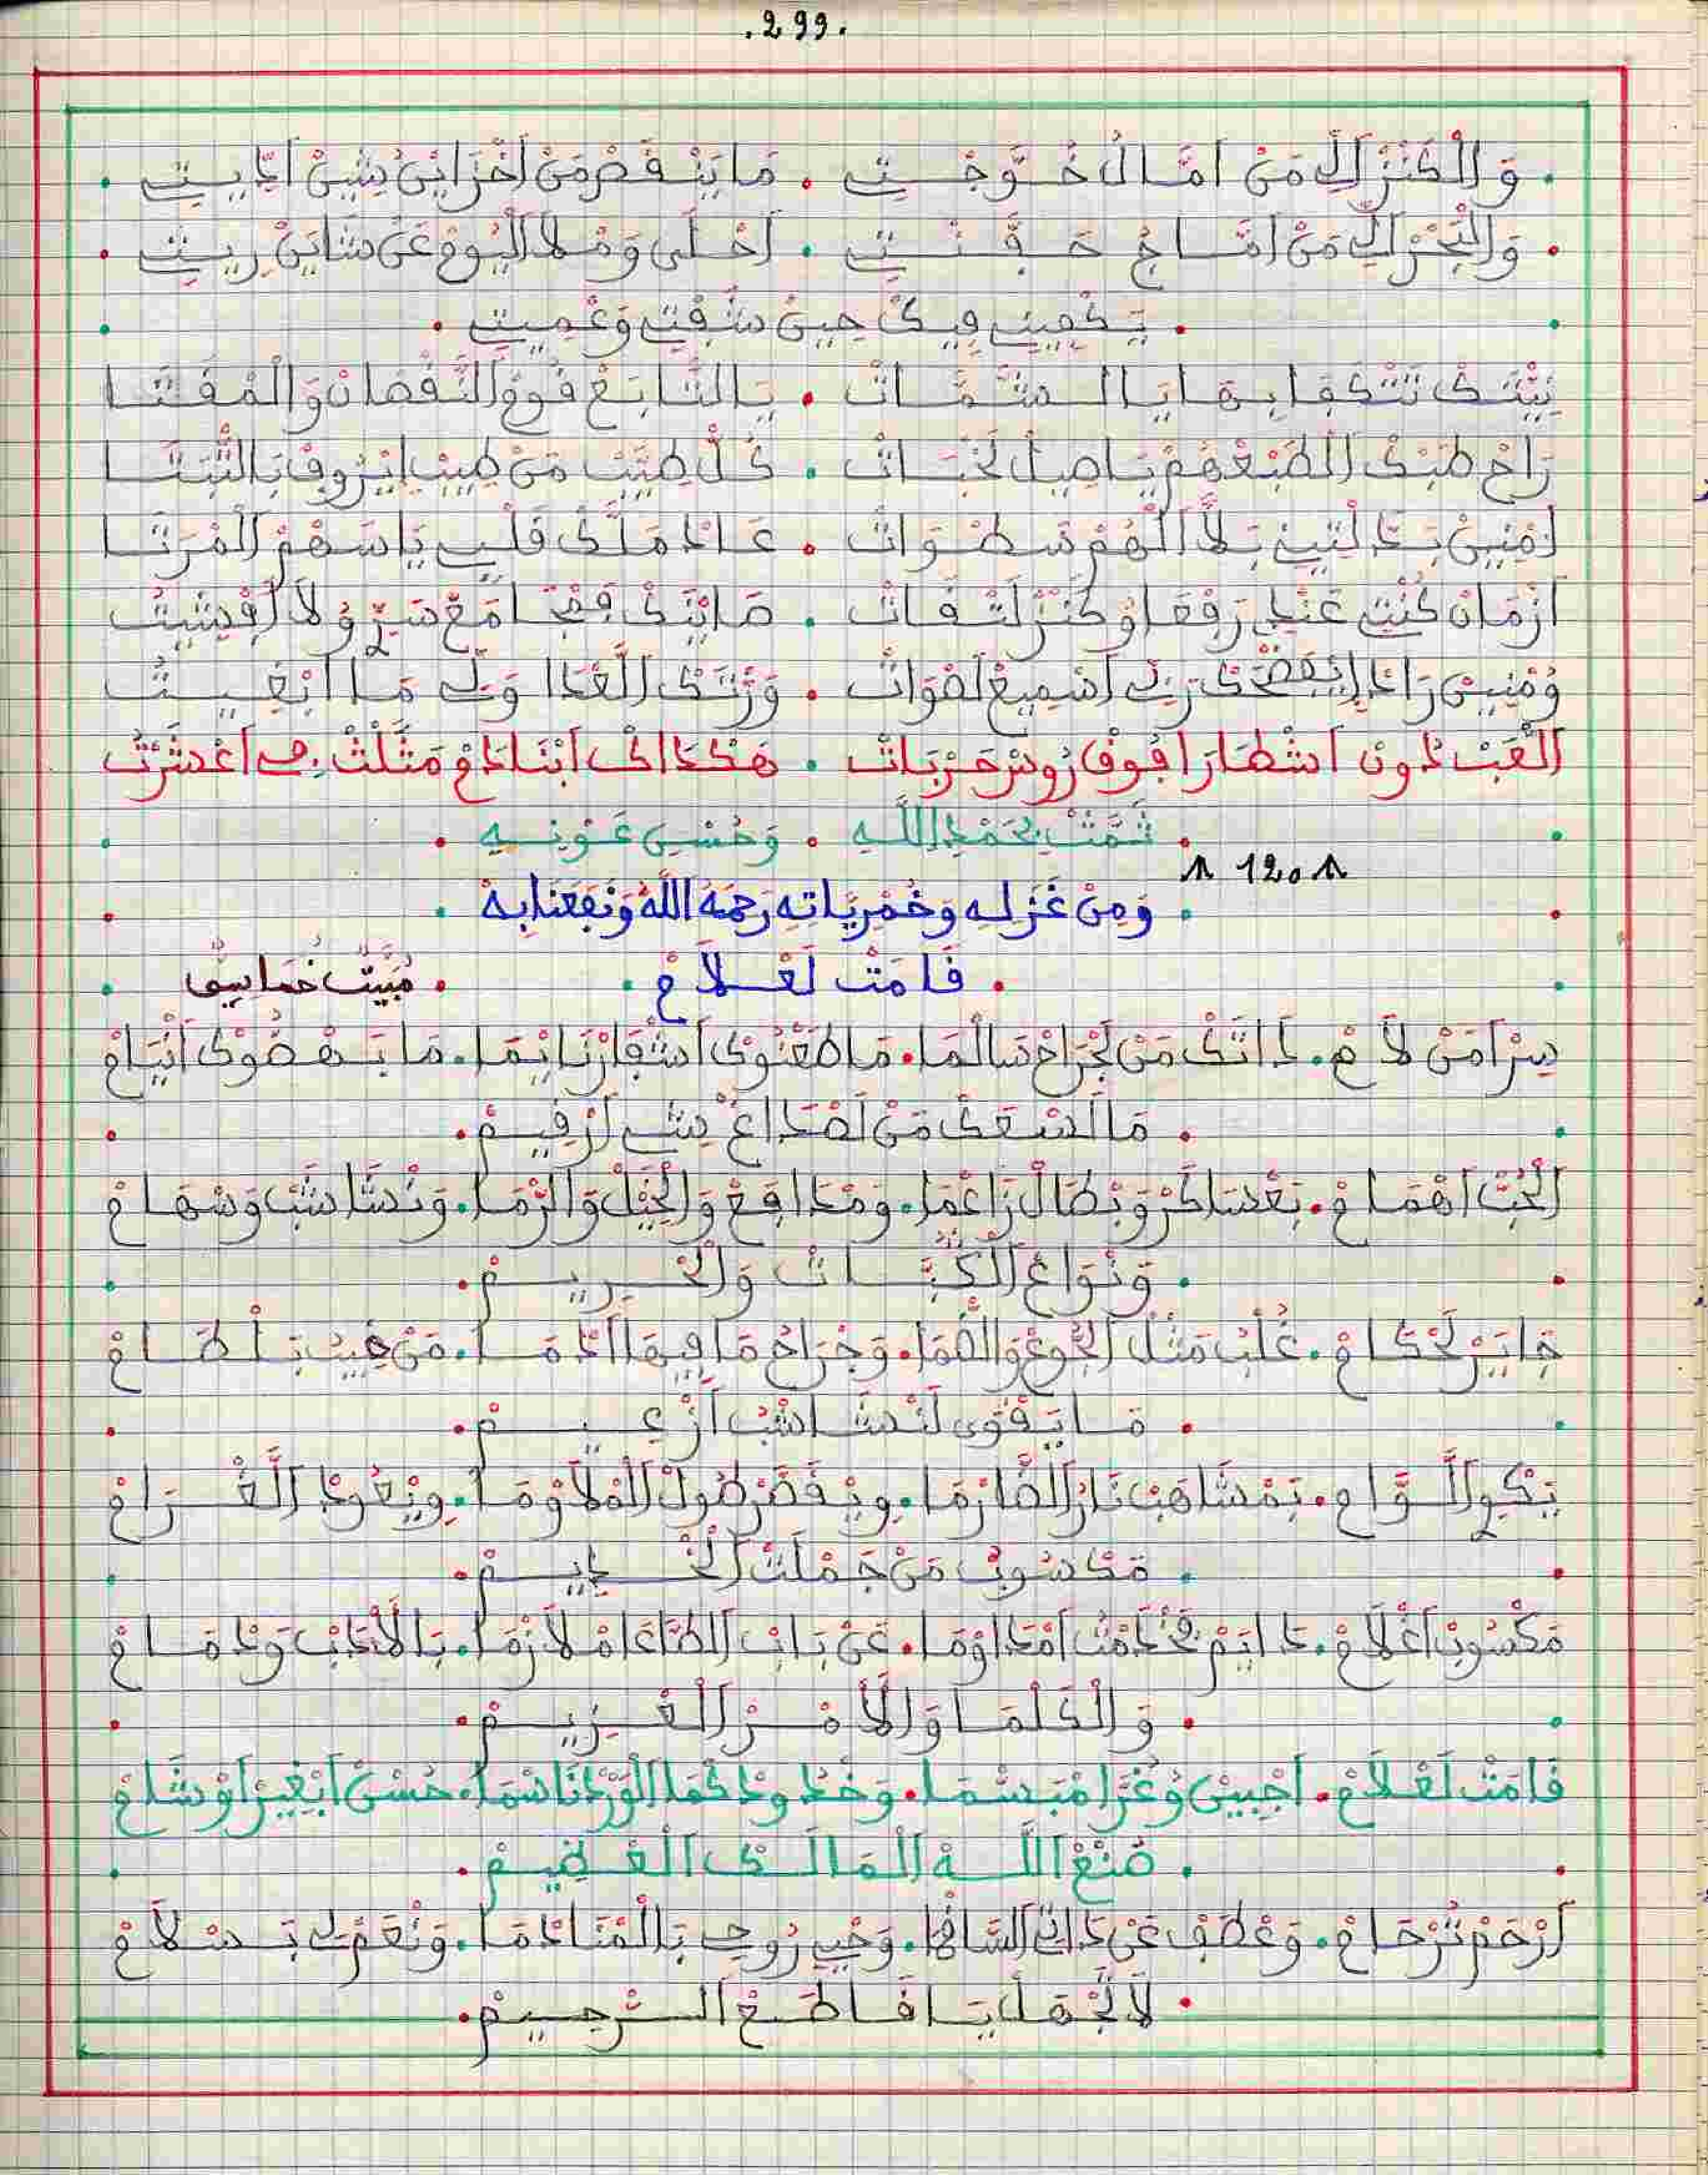 .299.
وَالْكَنْزْ اَلِّ مَنْ اَمَّالُ خُوَّجْتِ . مَا يَنْقَصْ مَنْ اَخْزَايْنُ شِينْ اَدِّيتِ
وَالْبَحْرْ اَلِّ مَنْ اَمَّاجُ حَفَّنْتِ . اَحْلَى وَمْلَا الْيُومْ عَنْ شَايَنْ رِيتِ
يَكْفِيتِ فِيكْ حِينْ شَفْتِ وَعْمِيتِ
نِيّْتَكْ تَتْكَفَا بِهَا يَا الشَّمَّاتْ . يَا التَّابَعْ قُومْ النَّقْصَانْ وَالْمَقْتَا
رَاحْ طَبْكْ الطَبْعْهُمْ يَا صِيلْ لَخْبَاتْ . كُلْ طِيَّبْ مَنْ طِيبُ اِيْرُوفْ بَالثَّبْتَا
اَمْنِينْ بَدَّلْتِينِ بَلَّا اَلْهُمْ سَطْوَاتْ . عَادْ مَلَّكْ قَلْبِ يَا سَهْمْ الْمَرْتَا
اَزْمَانْ كُنْتِ عَنْدِ رَفْعَا وُكَنْزْ لَتْقَاتْ . صَايْنَكْ فَفْجَا مَعْ سَرِّ وُلَا اَفْشِيتْ
وُمْنِينْ رَادْ اِيْفَضْحَكْ رَبِّ اَسْمِيعْ لَصْوَاتْ . وَرَّتَكْ اَلَّعْدَا وَلِّ مَا اَبْغِيتْ
اَلْقَبْ دُونْ اَشْطَارَا فُوقْ رُوسْ حَرْبَاتْ . هَكْدَاكْ اَبْنَادَمْ مَثَّلْتْ بِ اَعْشَرْتْ
تَمَّتْ بِحَمْدِ اللَّهِ . وَحُسْنِ عَوْنِهِ
120
وَمِنْ غَزَلِهِ وَخَمْرِيَّاتِهِ رَحِمَهُ اللَّهُ وَنَفَعَنَا بِهْ
قَامَتْ لَعْلَامْ . مْبَيَّتْ خُمَاسِي
سِرْ اَمَنْ لَامْ . دَاتَكْ مَنْ لَجْرَاحْ سَالْمَا . مَا طَعْنُوكْ اَشْفَارْ نَايْمَا . مَا بَهْضُوكْ اَنْيَامْ
مَا لَسْعَكْ مَنْ لَصْدَاغْ شِ اَرْقِيمْ
اَلْحُبْ اَهْمَامْ . بَعْسَاكَرْ وَبْطَالْ زَاعْمَا . وَمْدَافَعْ وَالْخِيلْ وَالرّْمَا . وَنْشَاشَبْ وَسْهَامْ
وَنْوَاعْ الْكُبَّاتْ وَالْخْرِيمْ
جَايَرْ لَحْكَامْ . غُلْبُ مَثْلْ الْجُوعْ وَالضّْمَا . وَجْرَاحُ مَا فِيهَا اَدْمَا . مَنْ غِيبُ بَلْطَامْ
مَا يَقْوَى لَنْشَاشْبُ اَزْعِيمْ
يَكْوِ اللُّوَّامْ . بَمْشَاهَبْ نَارْ الضَّارْمَا . وِيْقَصَّرْ طُولْ الْمْلَاوْمَا . وِيْعُودْ الْغْرَامْ
مَكْسُوبْ مَنْ جَمْلَتْ الْخْدِيمْ
مَكْسُوبْ اَغْلَامْ . دَايَمْ فَخْدَمْتُ اَمْدَاوْمَا . عَنْ بَابْ الطَّاعَا مْلَازْمَا . بَالْاَدَبْ وَدْمَامْ
وَالْكَلْمَا وَالْاَمْرْ الْعْزِيمْ
قَامَتْ لَعْلَامْ . اَجْبِينْ وُغُرَّا مْبَسْمَا . وَخْدُودْ كْمَا الْوَرْدْ نَاسْمَا . حُسْنْ اَبْغِيرْ اَوْشَامْ
صُنْعْ اللَّهْ الْمَالَكْ الْعْضِيمْ
اَرْحَمْ تُرْحَامْ . وَعْطَفْ عَنْ دَاتِ السَّاقْمَا . وَحْيِ رُوحِ بَالْمْنَادْمَا . وَنْعَمْ لِ بَسْلَامْ
لَا تَجْهَلْ يَا قَاطَعْ الرّْحِيمْ